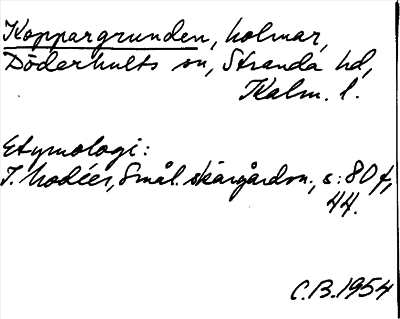 Koppargrunden, holmar,
Döderhults sn, Stranda hd,
Kalm. l.
Etymologi:
I. Modéer, Smål. skärgårdsn., s. 80 f,
44.
C.B. 1954